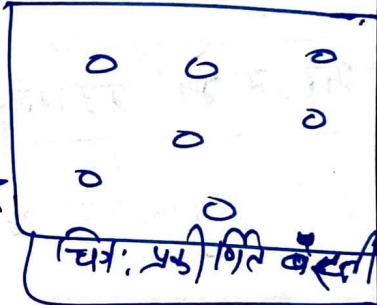 चित्र: प्रकीर्णित बस्ती